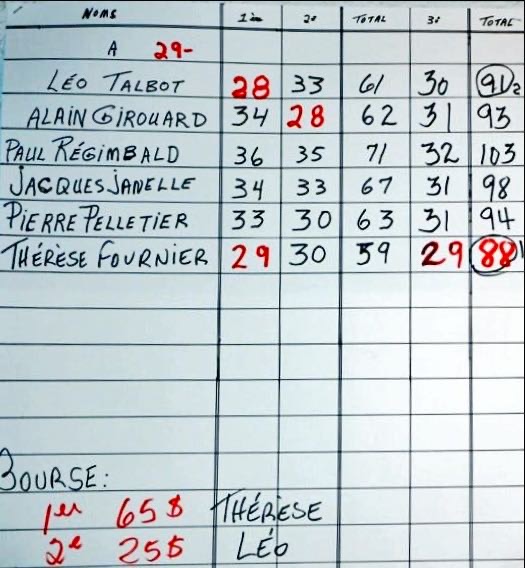 NOMS 1ière 2e TOTAL 3e TOTAL
A 29-
LÉO TALBOT 28 33 61 30 91 2
ALAIN GIROUARD 34 28 62 31 93
PAUL RÉGIMBALD 36 35 71 32 103
JACQUES JANELLE 34 33 67 31 98
PIERRE PELLETIER 33 30 63 31 94
THÉRÈSE FOURNIER 29 30 59 29 88 1
BOURSE:
1er 65$ THÉRÈSE
2e 25$ LÉO